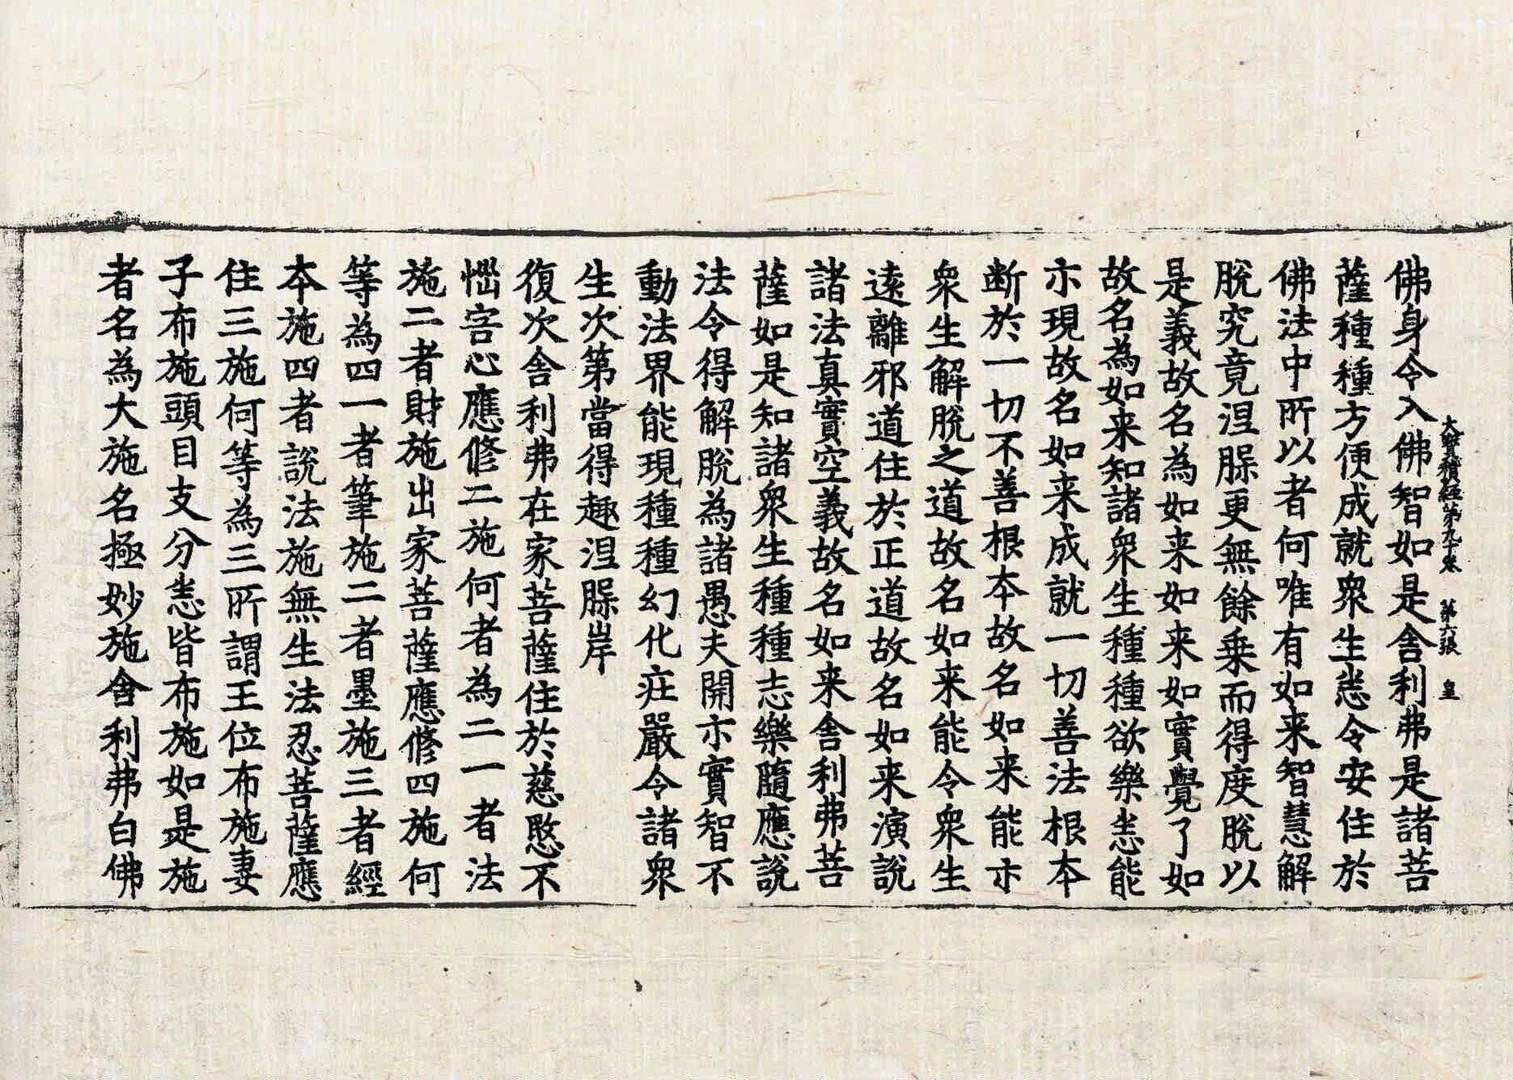 大寶積經第九十卷 第六張 皇
佛身令入佛智如是舍利弗是諸菩
薩種種方便成就衆生悉令安住於
佛法中所以者何唯有如来智慧解
脫究竟涅槃更無餘乗而得度脫以
是義故名為如来如来如實覺了如
故名為如来知諸衆生種種欲樂悉能
示現故名如来成就一切善法根本
断於一切不善根本故名如来能示
衆生解脫之道故名如来能令衆生
遠離邪道住於正道故名如来演說
諸法真實空義故名如来舍利弗菩
薩如是知諸衆生種種志樂隨應說
法令得解脫為諸愚夫開示實智不
動法界能現種種幻化莊嚴令諸衆
生次第當得趣涅槃岸
復次舍利弗在家菩薩住於慈愍不
惱害心應修二施何者為二一者法
施二者財施出家菩薩應修四施何
等為四一者筆施二者墨施三者經
本施四者說法施無生法忍菩薩應
住三施何等為三所謂王位布施妻
子布施頭目支分悉皆布施如是施
者名為大施名極妙施舍利弗白佛